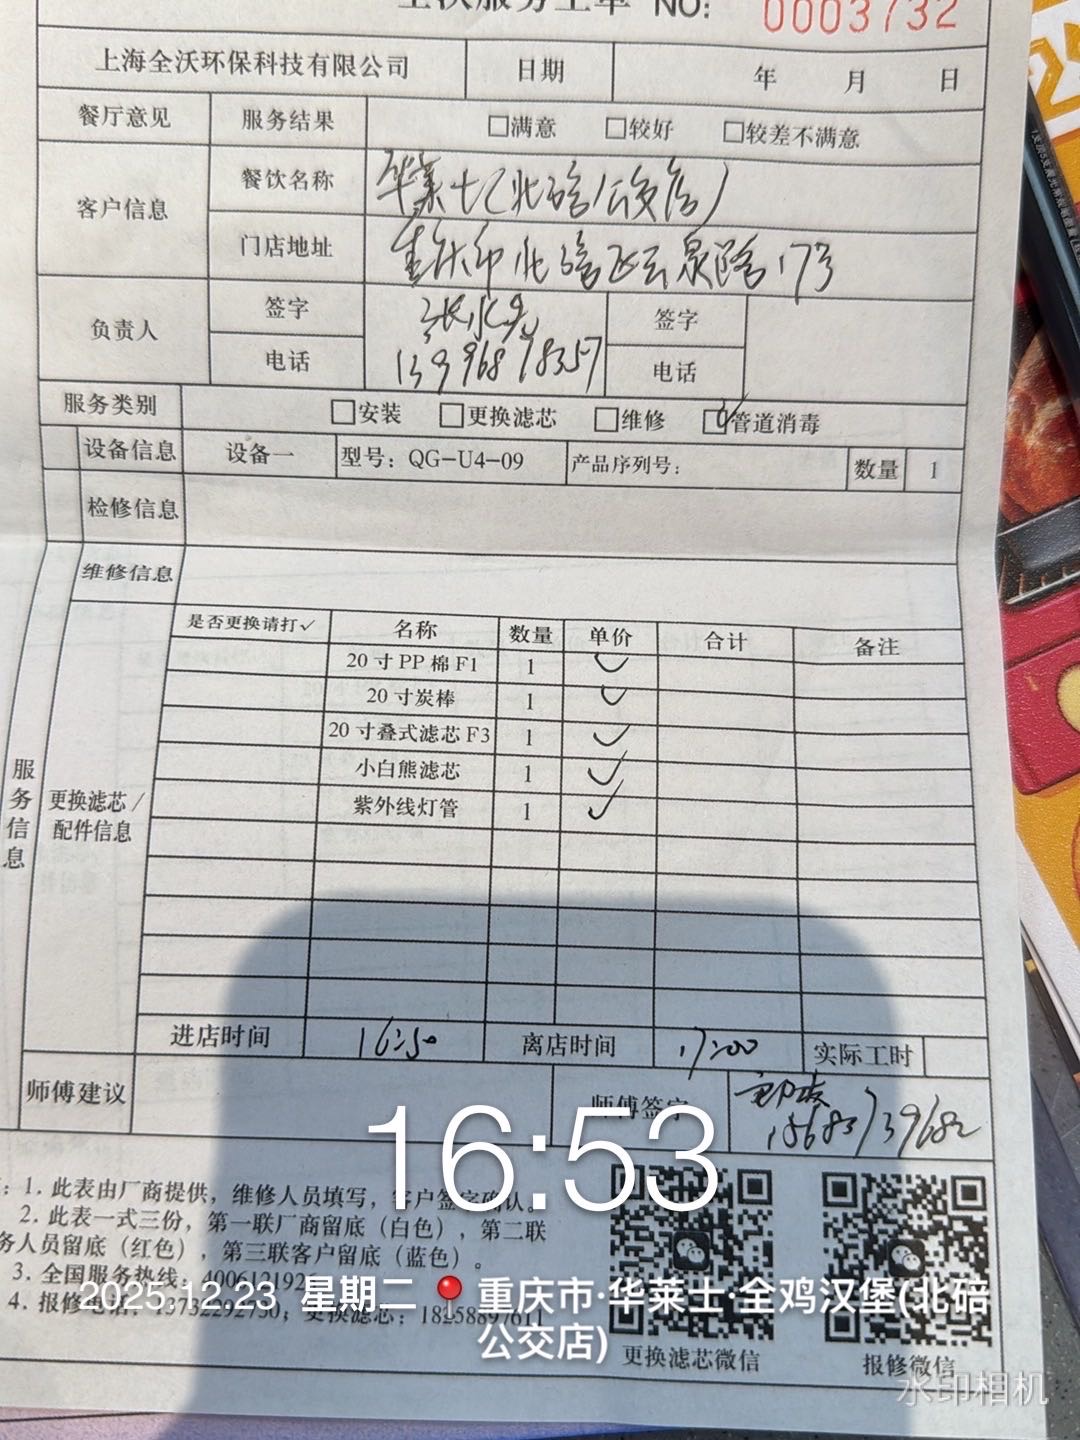 全沃服务工单 NO: 0003732
上海全沃环保科技有限公司 日期 年 月 日
餐厅意见 服务结果 □满意 □较好 □较差不满意
客户信息 餐饮名称 华莱士(北碚公交店)
门店地址 重庆市北碚区云泉路17号
负责人 签字 签字
电话 13996878357 电话
服务类别 □安装 □更换滤芯 □维修 ☑管道消毒
设备信息 设备一 型号：QG-U4-09 产品序列号： 数量 1
检修信息
维修信息
是否更换请打✓ 名称 数量 单价 合计 备注
20寸PP棉F1 1 ✓
20寸炭棒 1 ✓
20寸叠式滤芯F3 1 ✓
小白熊滤芯 1 ✓
紫外线灯管 1 ✓
服务信息
更换滤芯/
配件信息
进店时间 16:50 离店时间 17:00 实际工时
师傅建议 师傅签字
15683739682
16:53
：1. 此表由厂商提供，维修人员填写，客户签字确认。
2. 此表一式三份，第一联厂商留底（白色），第二联
务人员留底（红色），第三联客户留底（蓝色）。
3. 全国服务热线：
4. 报修电话： 更换滤芯：
2025.12.23 星期二 重庆市·华莱士·全鸡汉堡(北碚
公交店)
更换滤芯微信 报修微信
水印相机